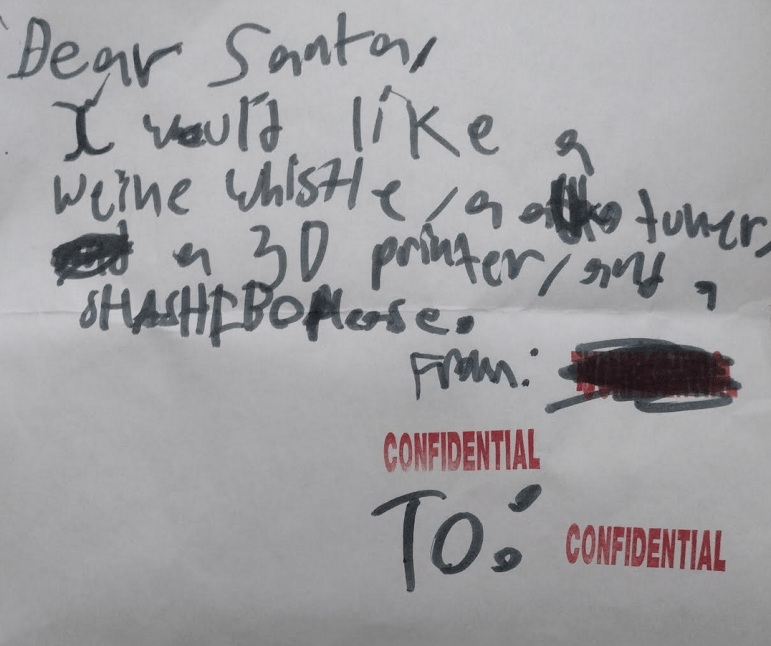 Dear Santa,
I would like a
weine whistle, a tuner,
a 3D printer, and a
SHASHIBO Please.
From:
CONFIDENTIAL
TO:
CONFIDENTIAL